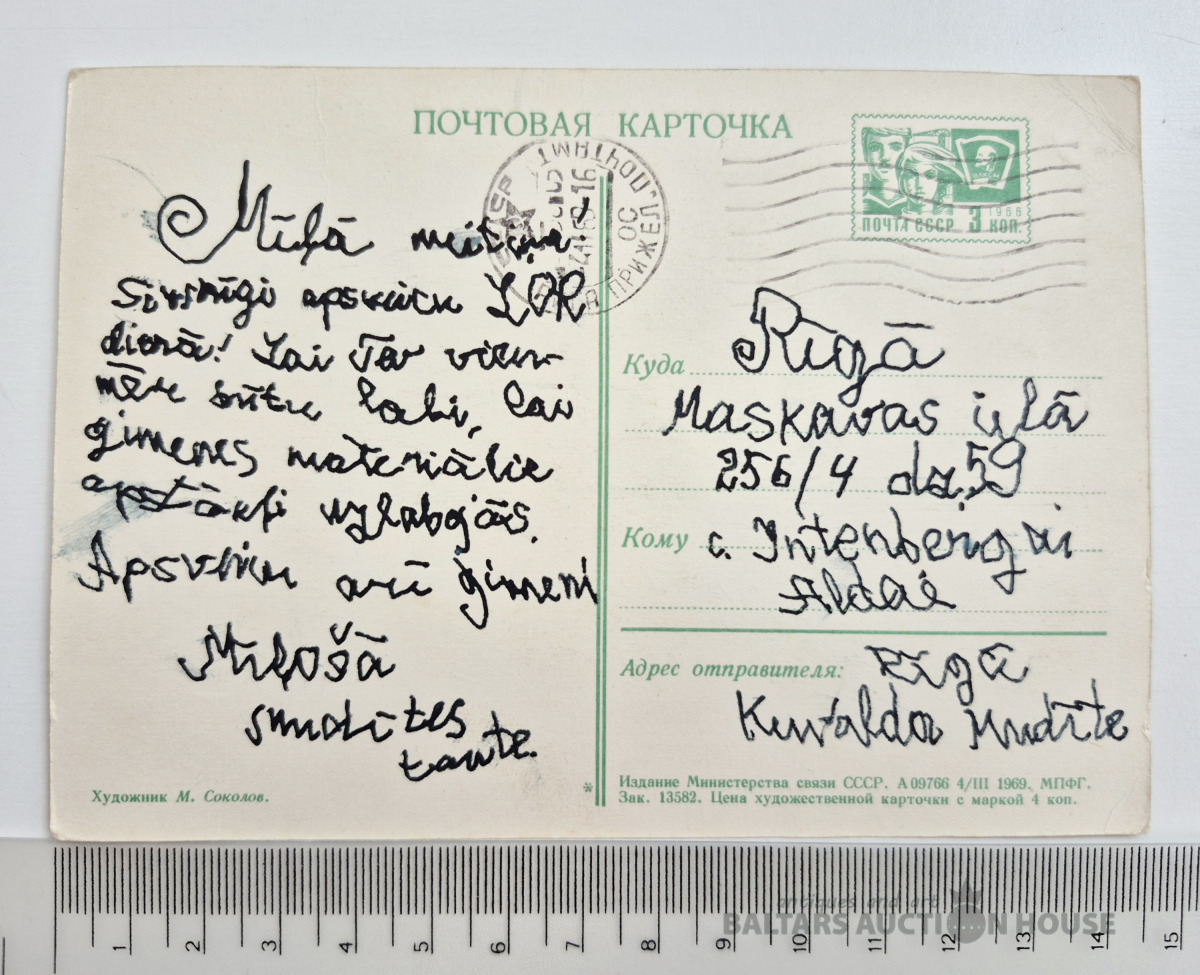 ПОЧТОВАЯ КАРТОЧКА
1966
ПОЧТА СССР 3 КОП.
Mīļā meitiņa
Sirsnīgi apsveicu
dienā! Lai Tev vien-
mēr būtu labi, lai
ģimenes materiālie
apstākļi uzlabojās.
Apsveicu arī ģimeni
Mīļošā
tante.
Куда Rīgā
Maskavas ielā
256/4 dz.59
Кому c. Intenbergai
Aldai
Адрес отправителя: Rīgā
Mudīte
Художник М. Соколов.
*
Издание Министерства связи СССР. А 09766 4/III 1969. МПФГ.
Зак. 13582. Цена художественной карточки с маркой 4 коп.
1 2 3 4 5 6 7 8 9 10 11 12 13 14 15
antiques and art
BALTARS AUCTION HOUSE